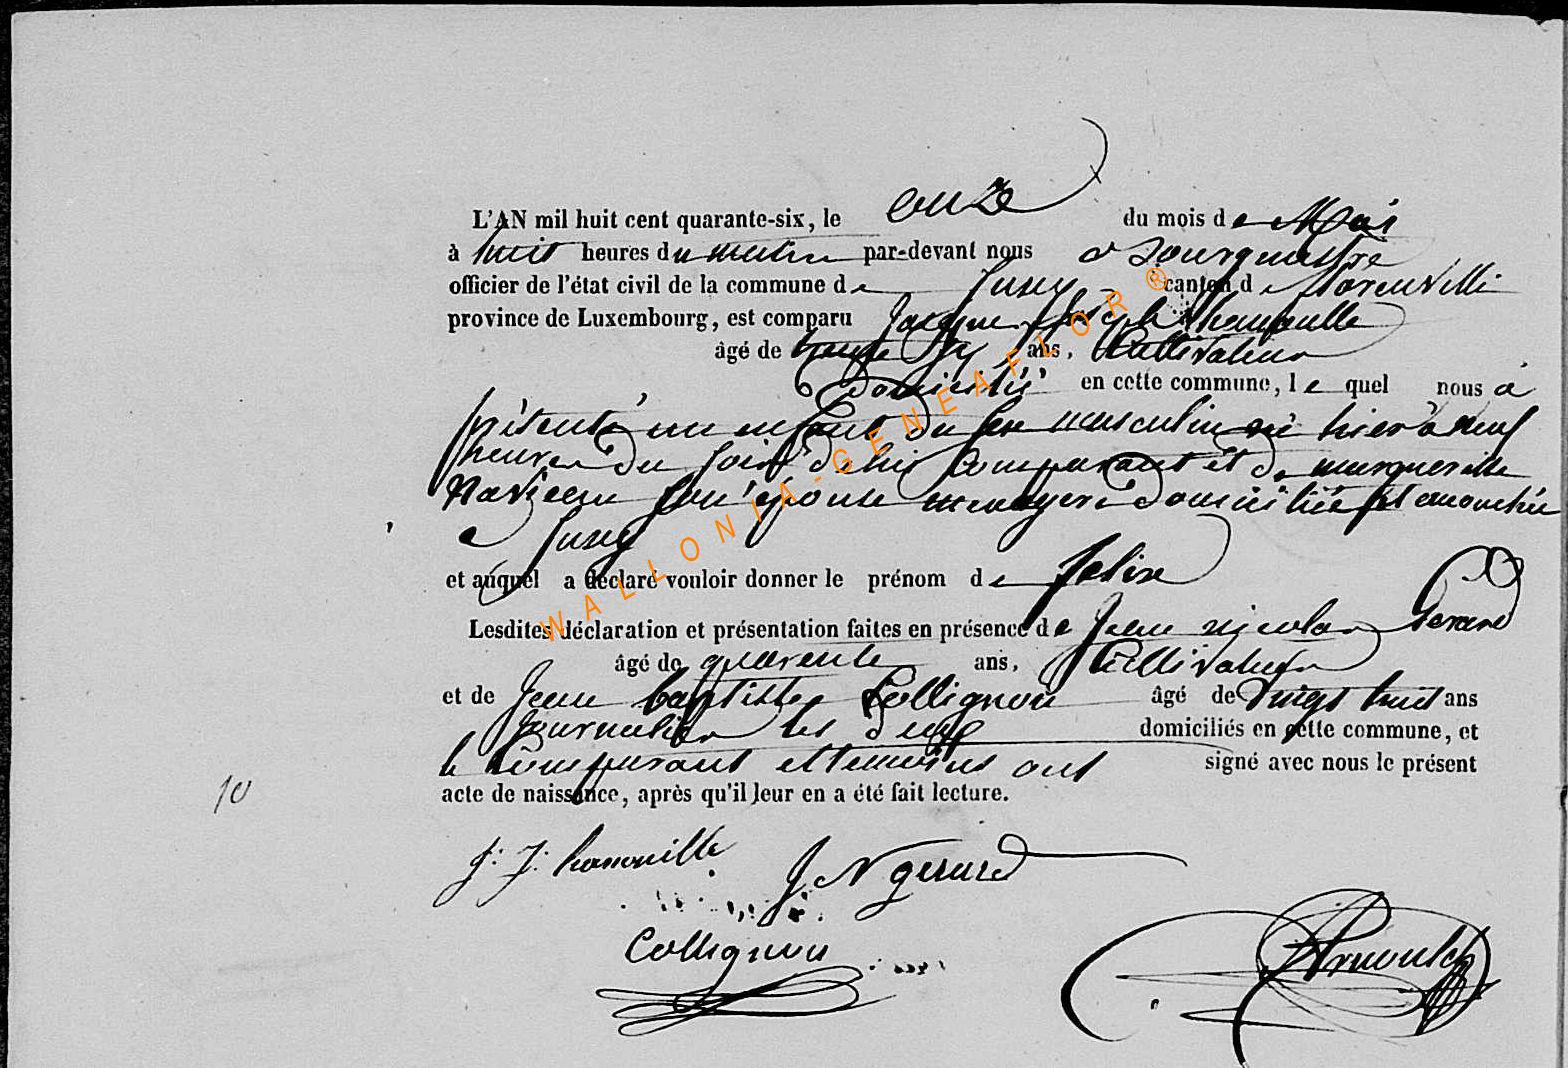 L'AN mil huit cent quarante-six, le onze du mois de Mai
à huit heures du matin par-devant nous Bourgmestre
officier de l'état civil de la commune de Jusey canton de
province de Luxembourg, est comparu Jacques Joseph
âgé de trente six ans, Cultivateur
domicilié en cette commune, le quel nous à
présenté un enfant du sexe masculin né hier à neuf
heures du soir de lui comparant et de marguerite
son épouse menagere domiciliée et accouchée
a Jusey
et auquel a déclaré vouloir donner le prénom de felix
Lesdites déclaration et présentation faites en présence de Jean nicolas Gerard
âgé de quarente ans, Cultivateur
et de Jean baptiste Collignon âgé de vingt huit ans
Journalier les deux domiciliés en cette commune, et
le Comparant et temoins ont signé avec nous le présent
acte de naissance, après qu'il leur en a été fait lecture.
10
J: J: hanouille
J N gerard
Collignon
WALLONIA-GENEAFLOR®